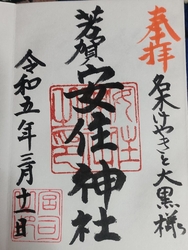 奉拝
名木けやきと大黒様
芳賀 安住神社
令和五年三月十一日